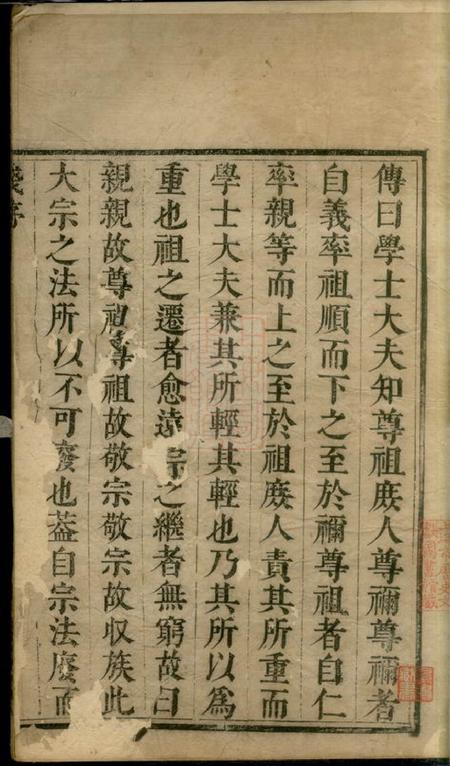 傳曰學士大夫知尊祖庻人尊禰尊禰者
自義率祖順而下之至於禰尊祖者自仁
率親等而上之至於祖庻人責其所重而
學士大夫兼其所輕其輕也乃其所以為
重也祖之遷者愈遠宗之繼者無窮故曰
親親故尊祖尊祖故敬宗敬宗故収族此
大宗之法所以不可廢也葢自宗法廢而